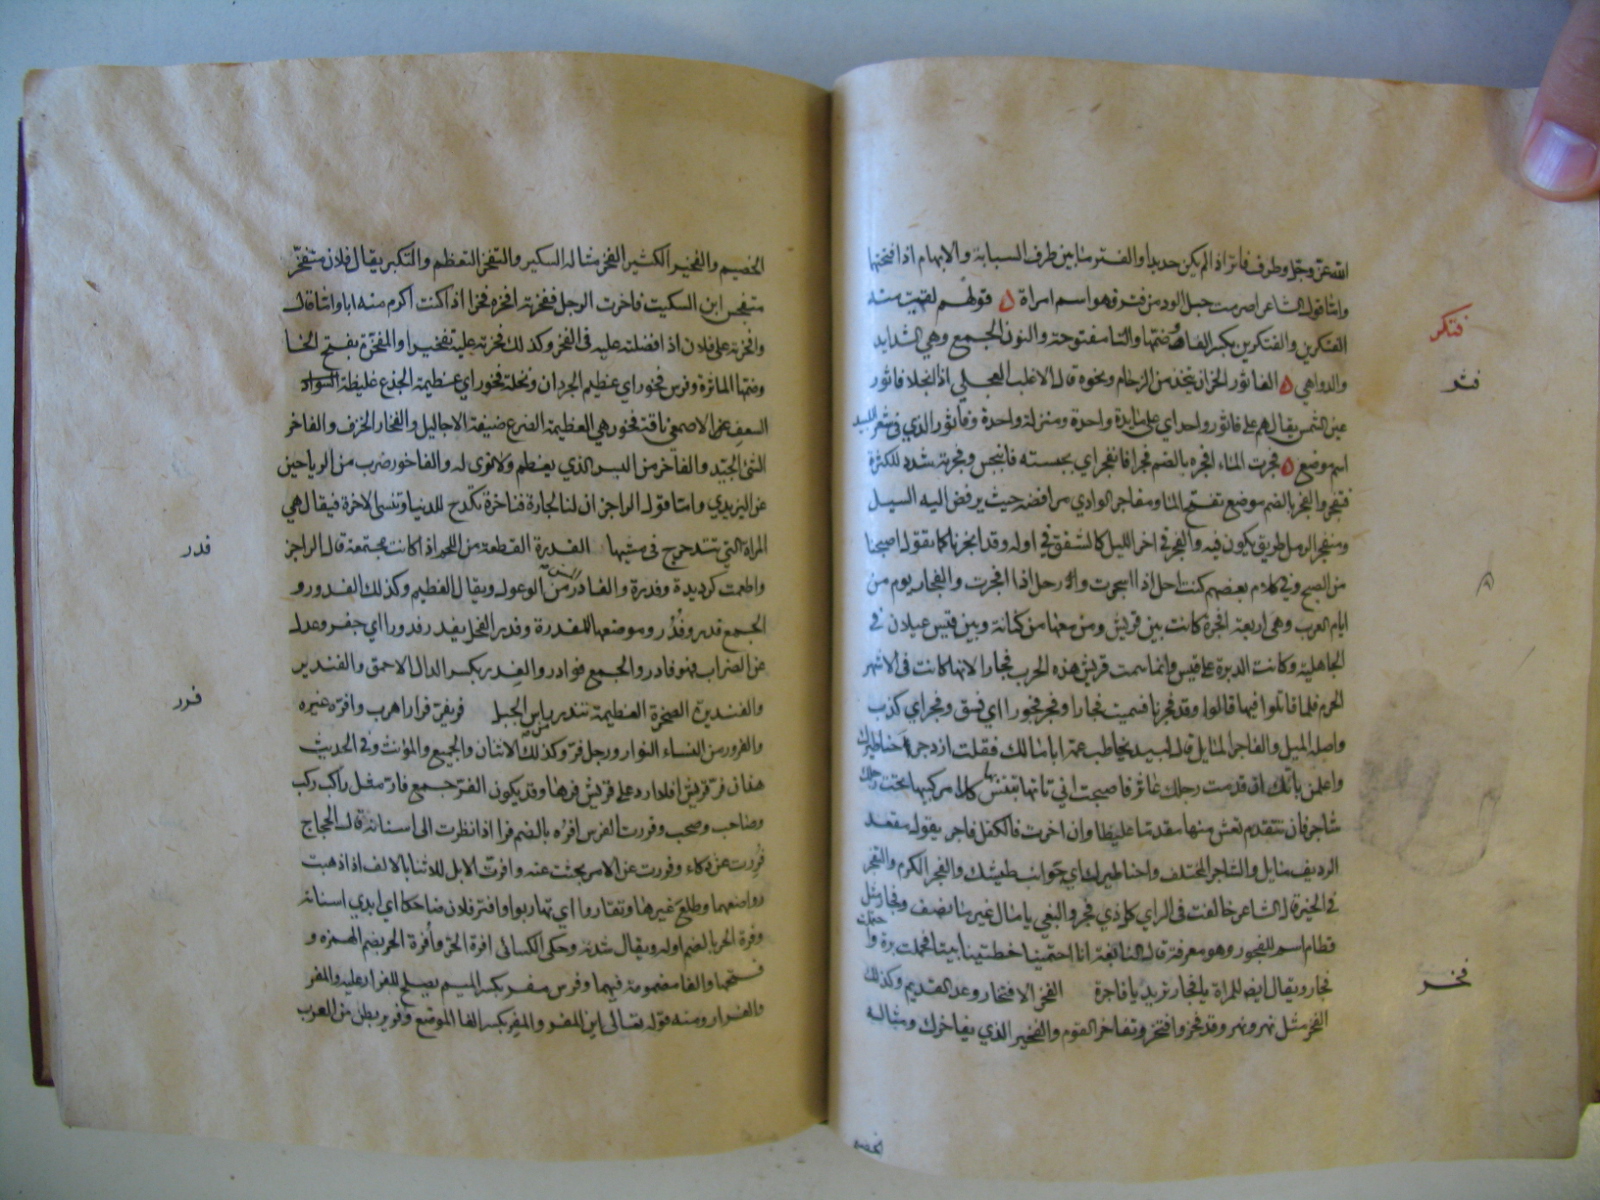 الله عز وجل وطرف فاتر اذا لم يكن حديدا والفتر ما بين طرف السبابة والابهام اذا فتحتها
واما قول الشاعر اصرمت حبل الود من فتر فهو اسم امراة ه قولهم لقيت منه
فتكر
الفتكرين والفتكرين بكسر الفا وضمتها والتا مفتوحة والنون للجمع وهي الشدايد
فثر
والدواهي ه الفاثور الخوان يتخذ من الرخام ونحوه قال الاغلب العجلي اذا انجلا فاثور
عين الشمس يقال هم على فاثور واحد اي على مايدة واحدة ومنزلة واحدة وفاثور الذي في شعر لبيد
اسم موضع ه فجرت الماء افجره بالضم فجرا فانفجر اي بجسته فانبجس وفجرته شدد للكثرة
فتفجر والفجرة بالضم موضع تفتح الماء ومفاجر الوادي مرافضه حيث يرفض اليه السيل
ومنفجر الرمل طريق يكون فيه والفجر في اخر الليل كالشفق في اوله وقد افجرنا كما تقول اصبحنا
من الصبح وفي كلام بعضهم كنت احل اذا اسحرت وارحل اذا افجرت والفجار يوم من
ايام العرب وهي اربعة افجرة كانت بين قريش ومن معها من كنانة وبين قيس عيلان في
الجاهلية وكانت الدبرة على قيس وانما سمت قريش هذه الحرب فجارا لانها كانت في الاشهر
الحرم فلما قاتلوا فيها قالوا وقد فجرنا فسميت فجارا وفجر فجورا اي فسق وفجر اي كذب
واصله الميل والفاجر المايل قال لبيد يخاطب عمه ابا مالك فقلت ازدجر احنا طيرك
واعلمن بانك ان قدمت رجلك عاثر فاصبحت انى تاتها تبتئس بها كلا مركبيها تحت رجلك
شاجر فان تتقدم تغش منها مقدما غليظا وان اخرت فالكفل فاجر يقول مقعد
الرديف مايل والشاجر المختلف واحنا طيرك اي جوانب طيشك والفجر الكرم والتفجر
في الخير قال الشاعر خالفت في الراي كل ذي فجر والبغي يا مال غير ما نصف وفجار مثل
قطام اسم للفجور وهو معرفة قال النابغة انا احتملنا خطتينا بيننا فحملت برة واحتملت
فجار ويقال ايضا للمراة يا فجار تريد يا فاجرة الفخر الافتخار وعد القديم وكذلك
فخر
الفخر مثل نهر ونهر وقد فخر وافتخر وتفاخر القوم والفخير الذي يفاخرك ومثاله
الخصيم
الخصيم والفخير الكثير الفخر مثاله السكير والتفخر التعظم والتكبر يقال فلان متفخر
متفجس ابن السكيت فاخرت الرجل ففخرته افخره فخرا اذا كنت اكرم منه ابا واما قال
وافخرته على فلان اذا فضلته عليه في الفخر وكذلك فخرته عليه تفخيرا والمفخرة بفتح الخا
وضمها الماثرة وفرس فخور اي عظيم الجردان ونخلة فخور اي عظيمة الجذع غليظة السواد
السعف عن الاصمعي ناقة فخور هي العظيمة الضرع ضيقة الاحاليل والفخار الخزف والفاخر
الشئ الجيد والفاخر من البسر الذي يعظم ولا نوى له والفاخور ضرب من الرياحين
عن اليزيدي واما قول الراجز ان لنا لجارة فناخرة تكدح للدنيا وتنسى الاخرة فيقال هي
المراة التي تتدحرج في مشيها الفدرة القطعة من اللحم اذا كانت مجتمعة قال الراجز
فدر
واطعمت كرديدة وفدرة والفادر المسن من الوعول ويقال العظيم وكذلك الفدور و
الجمع فدر وفدر وموضعها المفدرة وفدر الفحل يفدر فدورا اي جفر وعدل
عن الضراب فهو فادر والجمع فوادر والفدر بكسر الدال الاحمق والفندير
والفنديرة الصخرة العظيمة تندر من راس الجبل فر يفر فرارا هرب وافره غيره
فرر
والفرور من النساء النوار ورجل فر وكذلك الاثنان والجميع والمؤنث وفي الحديث
هذان فر قريش افلا ارد على قريش فرها وقد يكون الفر جمع فار مثل راكب وركب
وصاحب وصحب وفررت الفرس افره بالضم فرا اذا نظرت الى اسنانه قال الحجاج
فررت عن ذكاء وفررت عن الامر بحثت عنه وافرت الابل للاثنا بالالف اذا ذهبت
رواضعها وطلع غيرها وتفاروا اي تهاربوا وافتر فلان ضاحكا اي ابدي اسنانه
وفرة الحر بالضم اوله ويقال شدته وحكى الكسائى افرة الحر وأفرة الحر بضم الهمزة و
فتحها والفا مضمومة فيهما وفرس مفر بكسر الميم يصلح للفرار عليه والمفر
والفرار ومنه قوله تعالى اين المفر والمفر بكسر الفا الموضع وفرير بطن من العرب